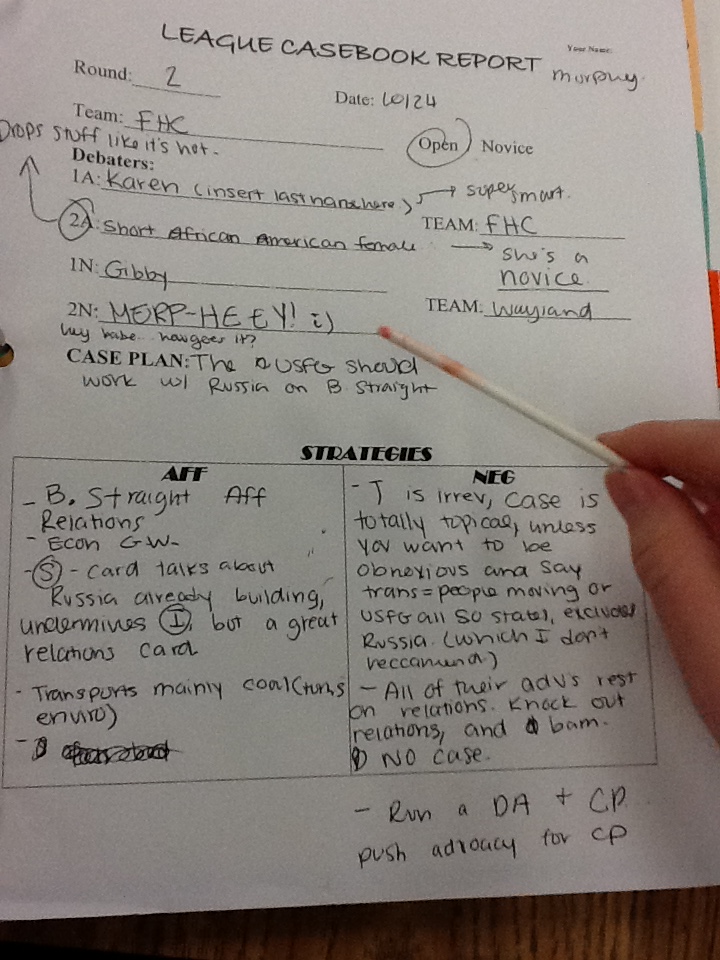 LEAGUE CASEBOOK REPORT
Your Name:
murphy
Round: 2
Date: 10/24
Team: FHC
Open Novice
Drops stuff like it's hot.
Debaters:
1A: Karen (insert last name here) → super smart.
2A: Short African American female → she's a novice.
TEAM: FHC
1N: Gibby
2N: MERP-HEEY! :)
TEAM: Wayland
hey babe.. how goes it?
CASE PLAN: The USFG should
work w/ Russia on B Straight
STRATEGIES
AFF
- B. Straight Aff
Relations
- Econ GW-
- (S) - card talks about
Russia already building,
undermines (I), but a great
relations card
- Transports mainly coal (turns
enviro)
-
NEG
- T is irrev, case is
totally topical, unless
you want to be
obnoxious and say
trans = people moving or
USFG all 50 states, excludes
Russia. (which I don't
reccomend.)
- All of their adv's rest
on relations. Knock out
relations, and bam.
NO case.
- Run a DA + CP
push advocacy for CP